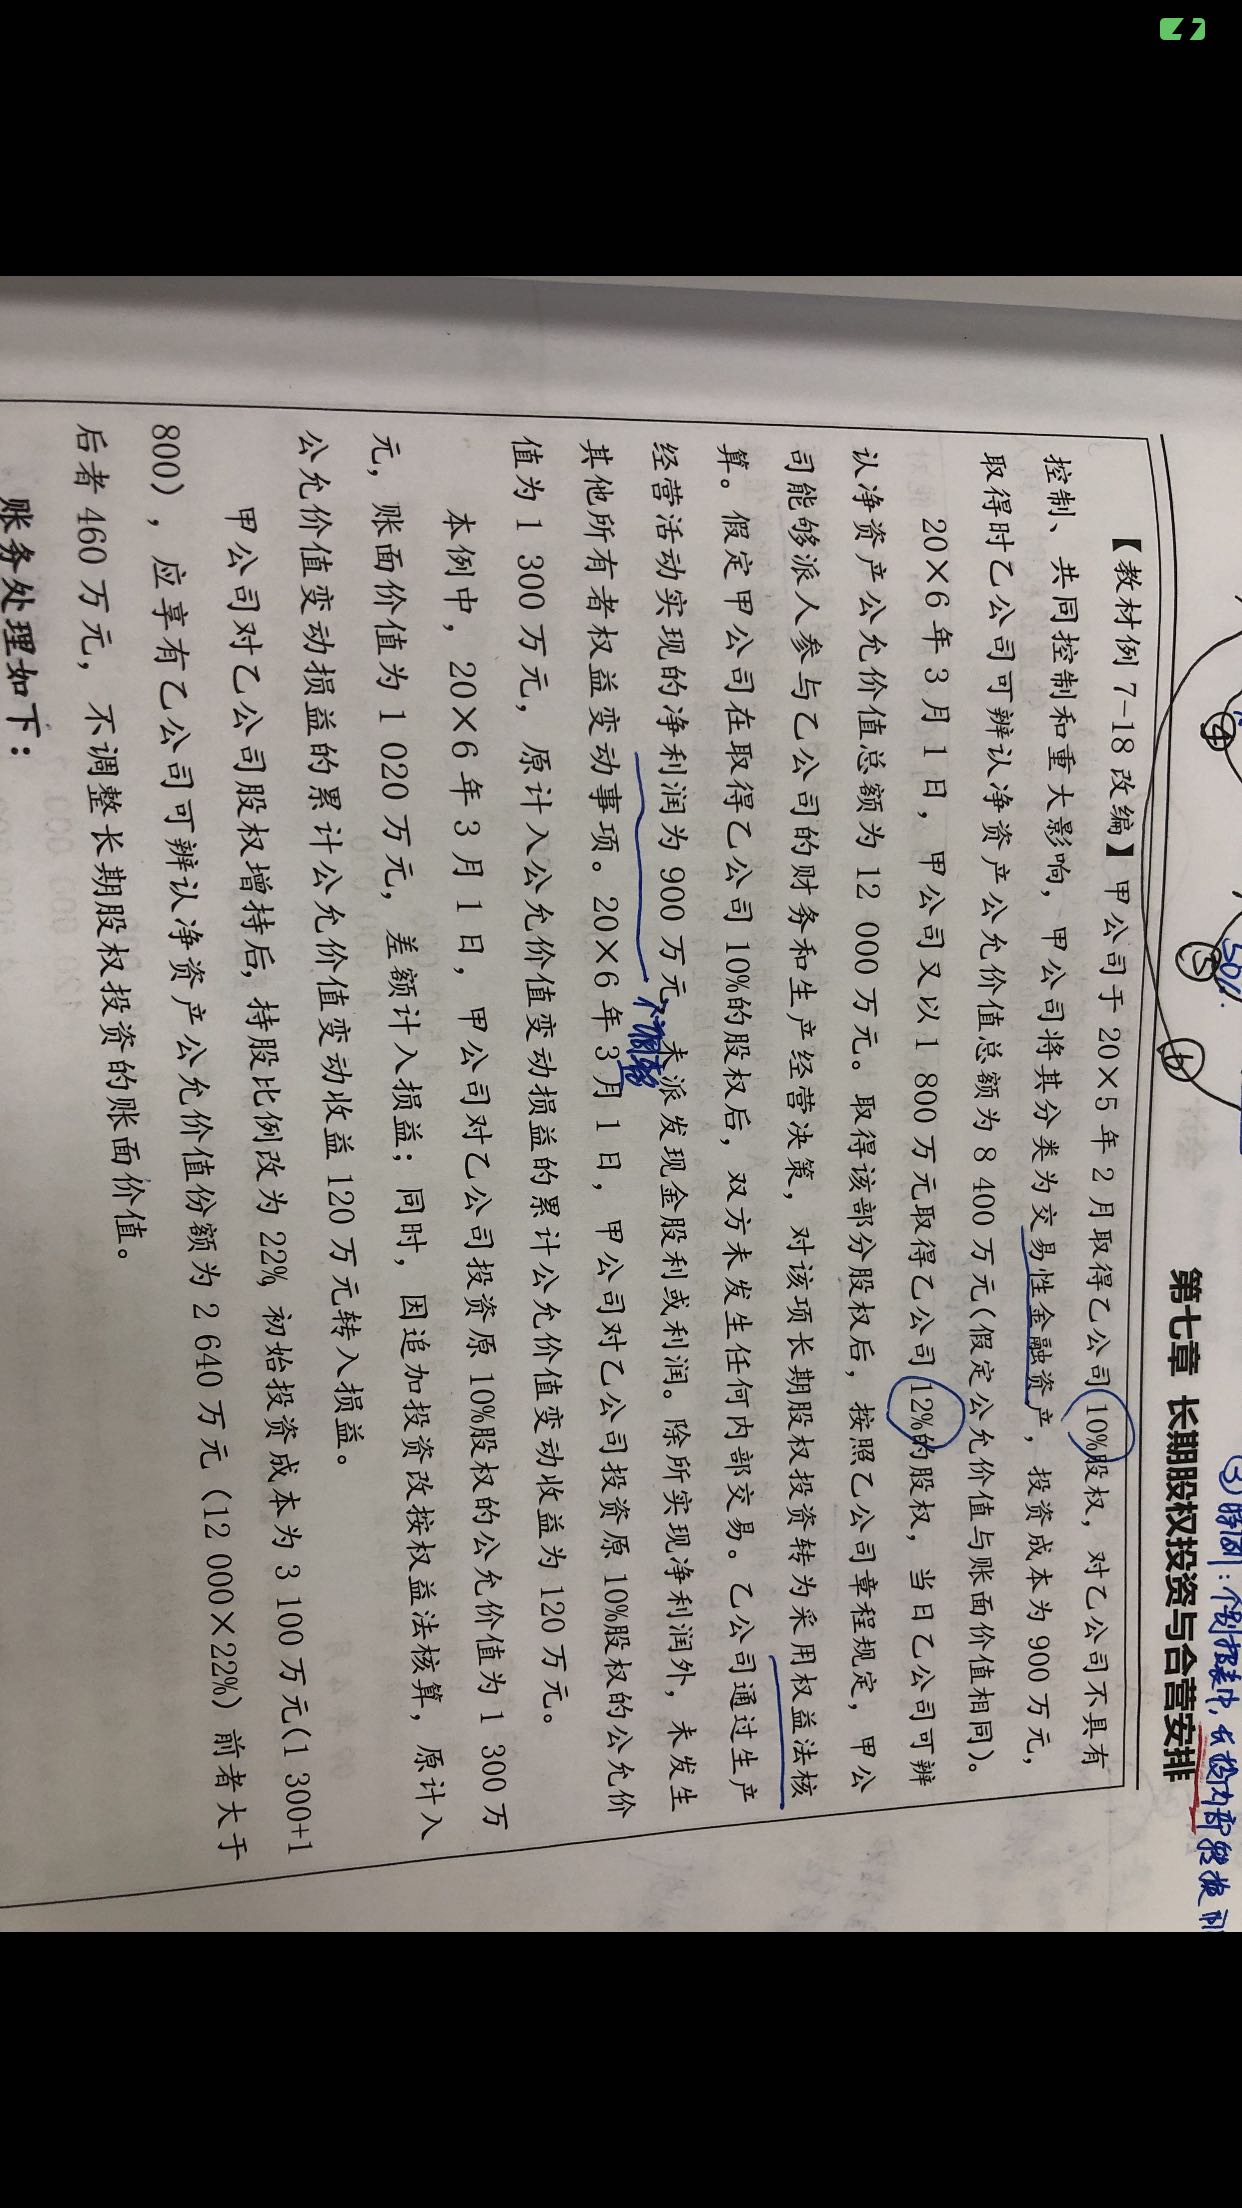 ③特例：个别报表中，长投内部转换
第七章 长期股权投资与合营安排
④
⑤
50%
⑥
【教材例 7-18 改编】甲公司于 20×5 年 2 月取得乙公司 10%股权，对乙公司不具有
控制、共同控制和重大影响，甲公司将其分类为交易性金融资产，投资成本为 900 万元，
取得时乙公司可辨认净资产公允价值总额为 8 400 万元（假定公允价值与账面价值相同）。
20×6 年 3 月 1 日，甲公司又以 1 800 万元取得乙公司 12%的股权，当日乙公司可辨
认净资产公允价值总额为 12 000 万元。取得该部分股权后，按照乙公司章程规定，甲公
司能够派人参与乙公司的财务和生产经营决策，对该项长期股权投资转为采用权益法核
算。假定甲公司在取得乙公司 10%的股权后，双方未发生任何内部交易。乙公司通过生产
经营活动实现的净利润为 900 万元，未派发现金股利或利润。除所实现净利润外，未发生
不调整
其他所有者权益变动事项。20×6 年 3 月 1 日，甲公司对乙公司投资原 10%股权的公允价
值为 1 300 万元，原计入公允价值变动损益的累计公允价值变动收益为 120 万元。
本例中，20×6 年 3 月 1 日，甲公司对乙公司投资原 10%股权的公允价值为 1 300 万
元，账面价值为 1 020 万元，差额计入损益；同时，因追加投资改按权益法核算，原计入
公允价值变动损益的累计公允价值变动收益 120 万元转入损益。
甲公司对乙公司股权增持后，持股比例改为 22%，初始投资成本为 3 100 万元（1 300+1
800），应享有乙公司可辨认净资产公允价值份额为 2 640 万元（12 000×22%）前者大于
后者 460 万元，不调整长期股权投资的账面价值。
账务处理如下：